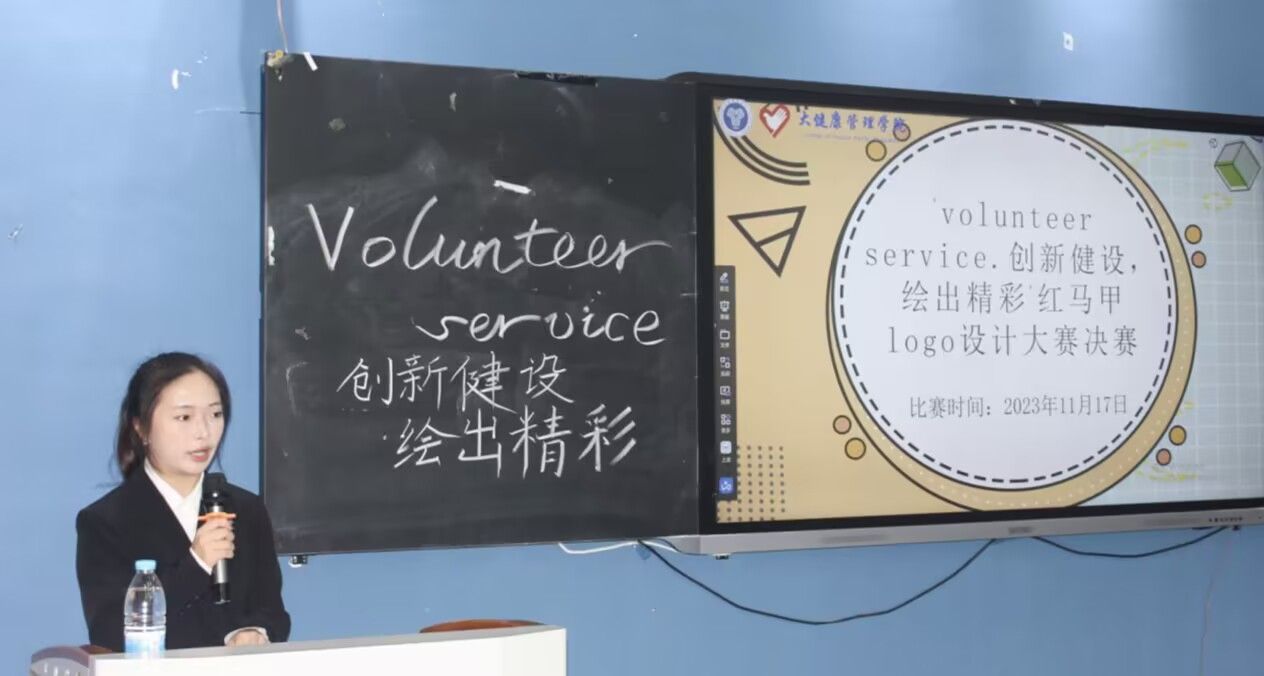 Volunteer
service
创新健设
绘出精彩
大健康管理学院
'volunteer
service.创新健设,
绘出精彩'红马甲
logo设计大赛决赛
比赛时间：2023年11月17日